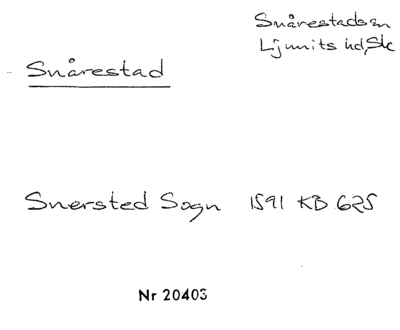 Snårestads sn
Ljunits hd, Sk
Snårestad
Snersted Sogn 1591 KB 625
Nr 20403